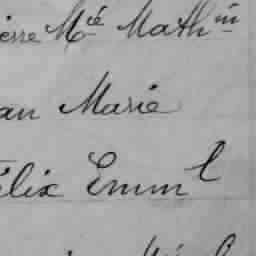 ierre Mié Mathin
an Marie
élix Emml